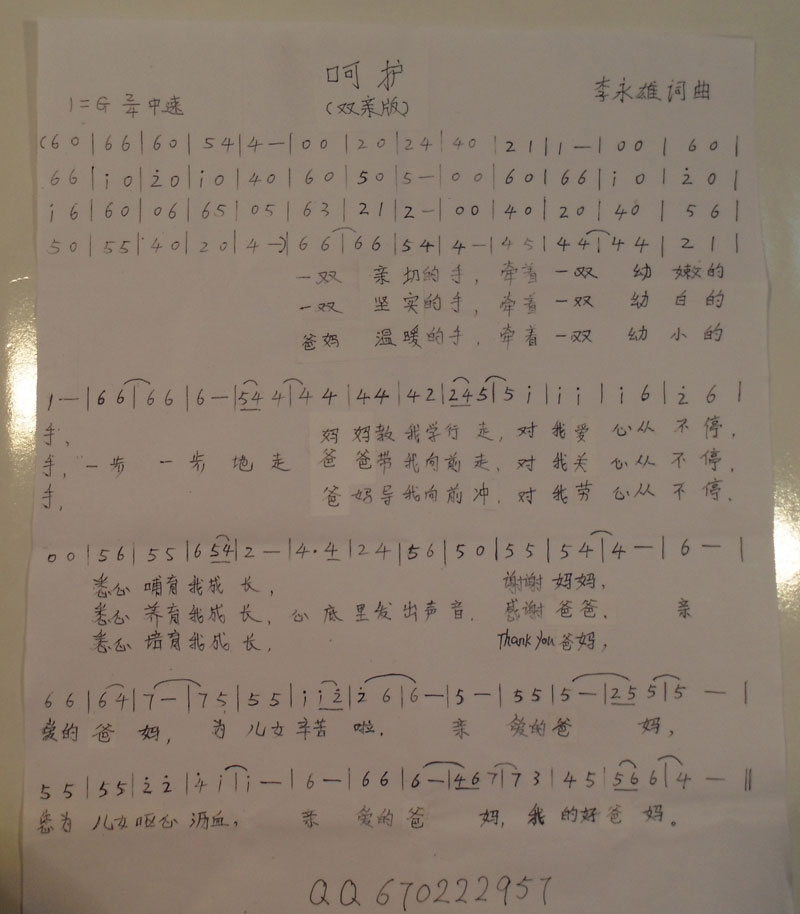 呵护
(双亲版)
李永雄词曲
1=G 2/4 中速
(6 0 | 6 6 | 6 0 | 5 4 | 4 — | 0 0 | 2 0 | 2 4 | 4 0 | 2 1 | 1 — | 0 0 | 6 0 |
6 6 | i 0 | 2̇ 0 | i 0 | 4 0 | 6 0 | 5 0 | 5 — | 0 0 | 6 0 | 6 6 | i 0 | 2̇ 0 |
i 6 | 6 0 | 0 6 | 6 5 | 0 5 | 6 3 | 2 1 | 2 — | 0 0 | 4 0 | 2 0 | 4 0 | 5 6 |
5 0 | 5 5 | 4 0 | 2 0 | 4 —) | 6 6 | 6 6 | 5 4 | 4 — | 4 5 | 4 4 | 4 4 | 2 1 |
一双 亲切的手, 牵着 一双 幼 嫩的
一双 坚实的手, 牵着 一双 幼 白的
爸妈 温暖的手, 牵着 一双 幼 小的
1 — | 6 6 | 6 6 | 6 — | 5 4 4 | 4 4 | 4 4 | 4 2 | 2 4 5 | 5 i | i i | i 6 | 2̇ 6 |
手, 妈 妈教我学行 走, 对 我爱 心从 不 停,
手, 一步 一步 地走 爸 爸带我向前走, 对 我关 心从 不 停,
手, 爸 妈导我向前冲, 对 我劳 心从 不 停.
0 0 | 5 6 | 5 5 | 6 5 4 | 2 — | 4 · 4 | 2 4 | 5 6 | 5 0 | 5 5 | 5 4 | 4 — | 6 — |
悉心 哺育我成 长, 谢谢 妈妈,
悉心 养育我成 长, 心 底里发出声音. 感谢 爸爸. 亲
悉心 培育我成 长, Thank you 爸妈,
6 6 | 6 4 | 7 — | 7 5 | 5 5 | i i 2̇ | 2̇ 6 | 6 — | 5 — | 5 5 | 5 — | 2 5 5 | 5 — |
爱的 爸 妈, 为 儿女辛苦 啦. 亲 爱的爸 妈,
5 5 | 5 5 | 2̇ 2̇ | 4̇ i | i — | 6 — | 6 6 | 6 — | 4 6 7 | 7 3 | 4 5 | 5 6 6 | 4 — ||
您为 儿女呕心 沥血, 亲 爱的爸 妈, 我 的好爸 妈。
QQ 670222957